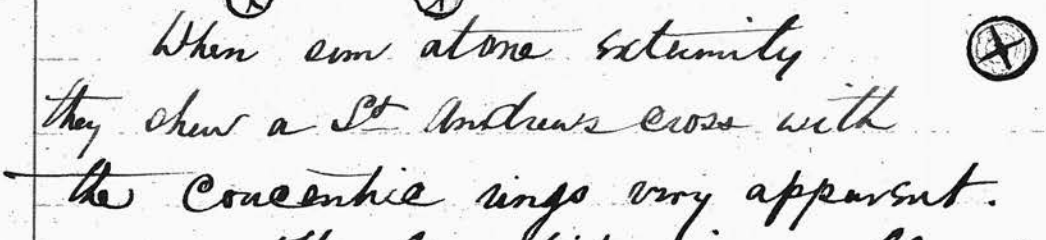 When seen at one extremity
they shew a St Andrews cross with
the concentric rings very apparent.